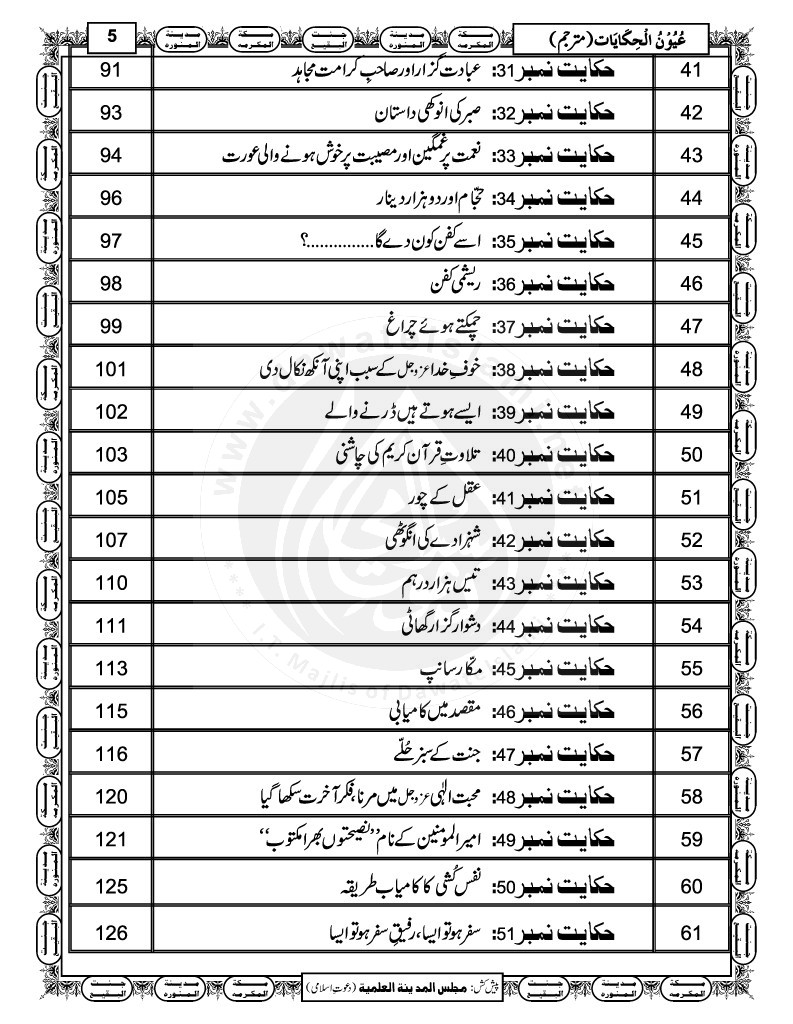 عُیُوْنُ الْحِکَایَات (مترجم) 5
41 حکایت نمبر31: عبادت گزار اور صاحبِ کرامت مجاہد 91
42 حکایت نمبر32: صبر کی انوکھی داستان 93
43 حکایت نمبر33: نعمت پر غمگین اور مصیبت پر خوش ہونے والی عورت 94
44 حکایت نمبر34: حجّام اور دو ہزار دینار 96
45 حکایت نمبر35: اسے کفن کون دے گا...............؟ 97
46 حکایت نمبر36: ریشمی کفن 98
47 حکایت نمبر37: چمکتے ہوئے چراغ 99
48 حکایت نمبر38: خوفِ خدا عزوجل کے سبب اپنی آنکھ نکال دی 101
49 حکایت نمبر39: ایسے ہوتے ہیں ڈرنے والے 102
50 حکایت نمبر40: تلاوتِ قرآن کریم کی چاشنی 103
51 حکایت نمبر41: عقل کے چور 105
52 حکایت نمبر42: شہزادے کی انگوٹھی 107
53 حکایت نمبر43: تیس ہزار درہم 110
54 حکایت نمبر44: دشوار گزار گھاٹی 111
55 حکایت نمبر45: مکّار سانپ 113
56 حکایت نمبر46: مقصد میں کامیابی 115
57 حکایت نمبر47: جنت کے سبز حُلّے 116
58 حکایت نمبر48: محبت الٰہی عزوجل میں مرنا، فکر آخرت سکھا گیا 120
59 حکایت نمبر49: امیر المومنین کے نام ’’نصیحتوں بھرا مکتوب‘‘ 121
60 حکایت نمبر50: نفس کُشی کا کامیاب طریقہ 125
61 حکایت نمبر51: سفر ہو تو ایسا، رفیقِ سفر ہو تو ایسا 126
پیش کش: مجلس المدینۃ العلمیۃ (دعوتِ اسلامی)
www.dawateislami.net
I.T. Majlis of DawateIslami